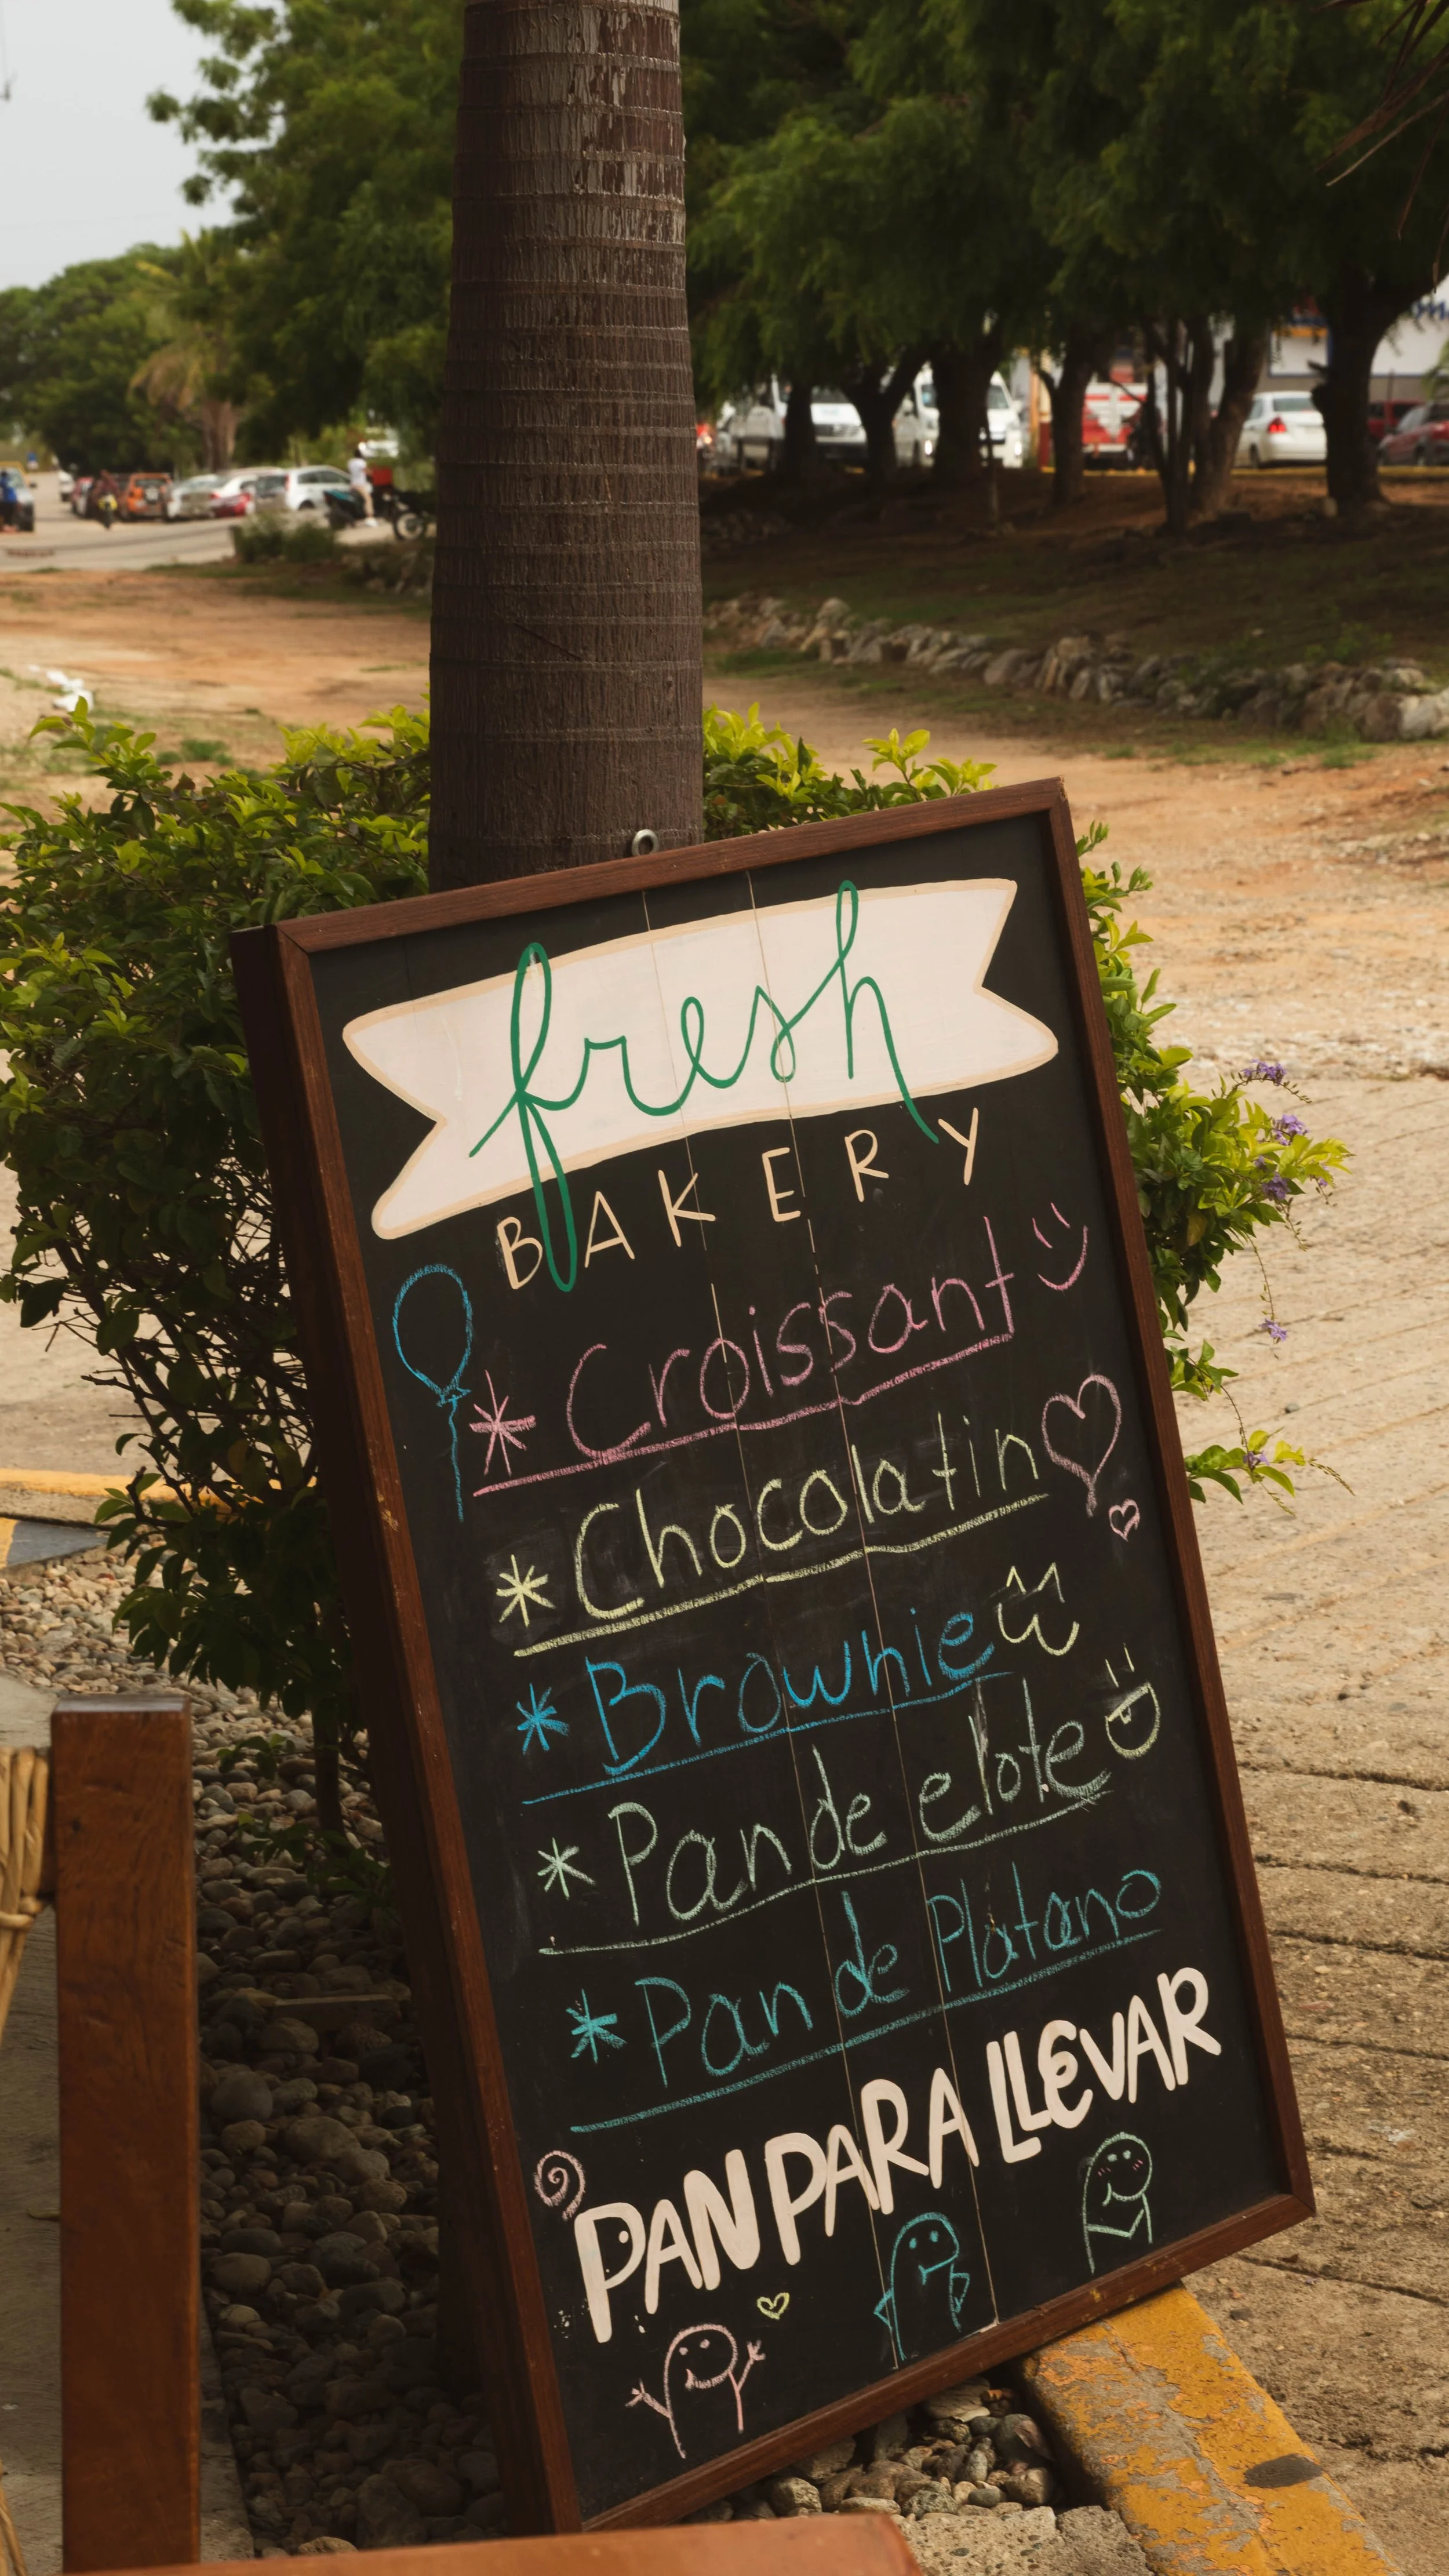 fresh
BAKERY
* Croissant
* Chocolatin
* Brownie
* Pan de elote
* Pan de Platano
PAN PARA LLEVAR